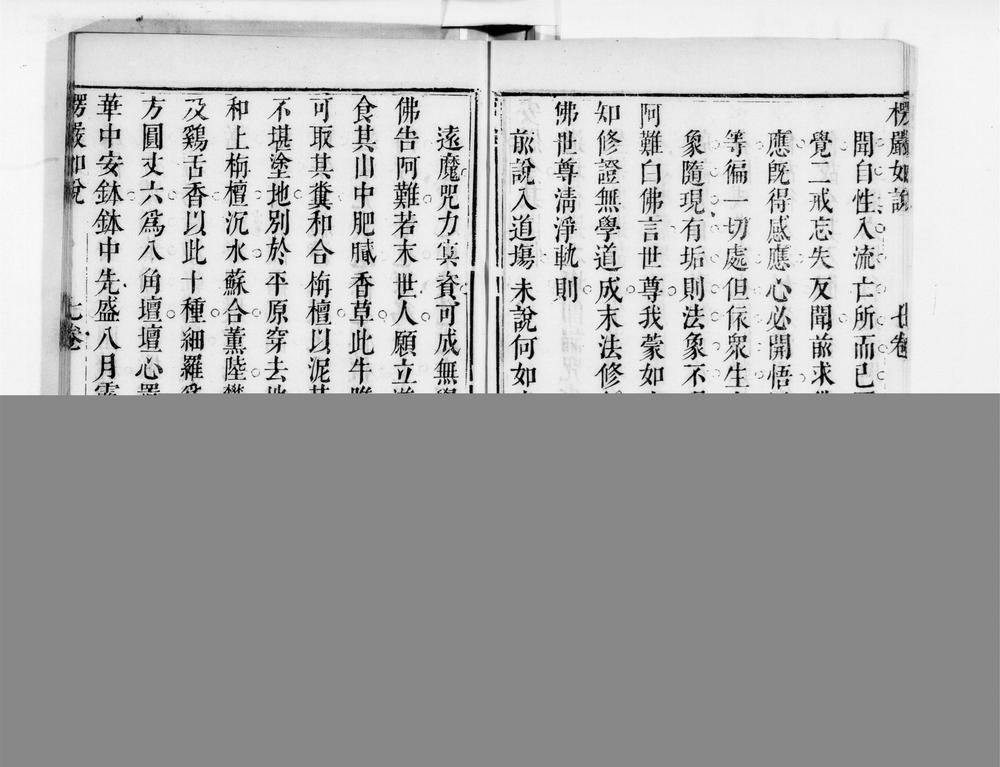 楞嚴如說 七卷
聞自性入流亡所而已
覺二戒忘失反聞前求
應既得感應心必開悟
等徧一切處但依衆生
象隨現有垢則法象不
阿難白佛言世尊我蒙如
知修證無學道成末法修
佛世尊清淨軌則
前說入道塲未說何如
遠魔咒力寞資可成無學
佛告阿難若末世人願立道
食其山中肥膩香草此牛唯
可取其糞和合栴檀以泥其
不堪塗地別於平原穿去地
和上栴檀沉水蘇合薰陸
及鷄舌香以此十種細羅爲
方圓丈六爲八角壇壇心置
華中安鉢鉢中先盛八月露
楞嚴如說 七卷